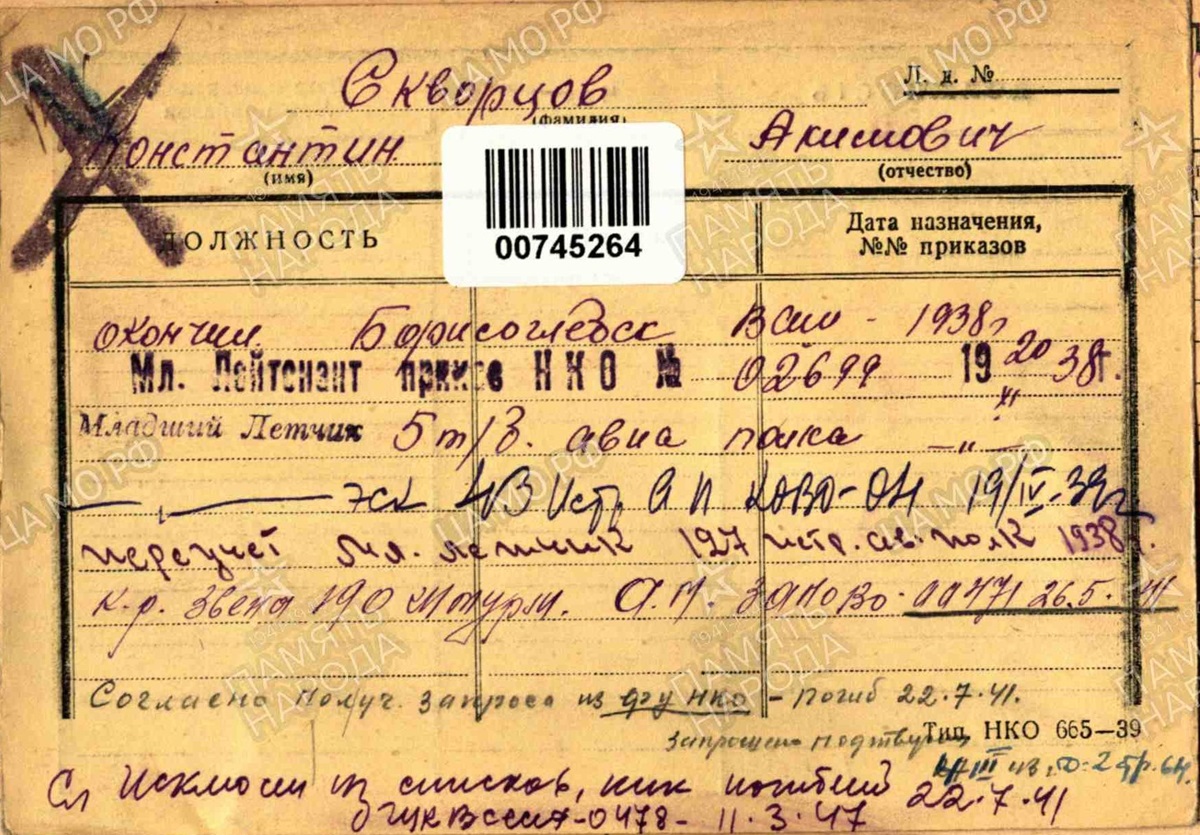 Л. д. №
Скворцов
(фамилия)
Константин Акимович
(имя) (отчество)
00745264
ДОЛЖНОСТЬ Дата назначения,
№№ приказов
окончил Борисоглебск 1938г
Мл. Лейтенант приказ НКО № 02699 1938г. 20
XI
Младший Летчик 5 авиа полка —„—
—„— эск 43 Истр АП КОВО-ОН 19/IV-39г
переучет мл. летчик 127 истр. ав. полк 1938г.
к-р. звена 190 штурм. А.П. ЗАПОВО 00471 26.5.41
Согласно получ. запроса из НКО - погиб 22.7.41.
Тип. НКО 665—39
Запрошено
Исключен из списков, как погибший 22.7.41
ГУК ВС 0478- 11.3.47
ЦАМО РФ
ПАМЯТЬ НАРОДА